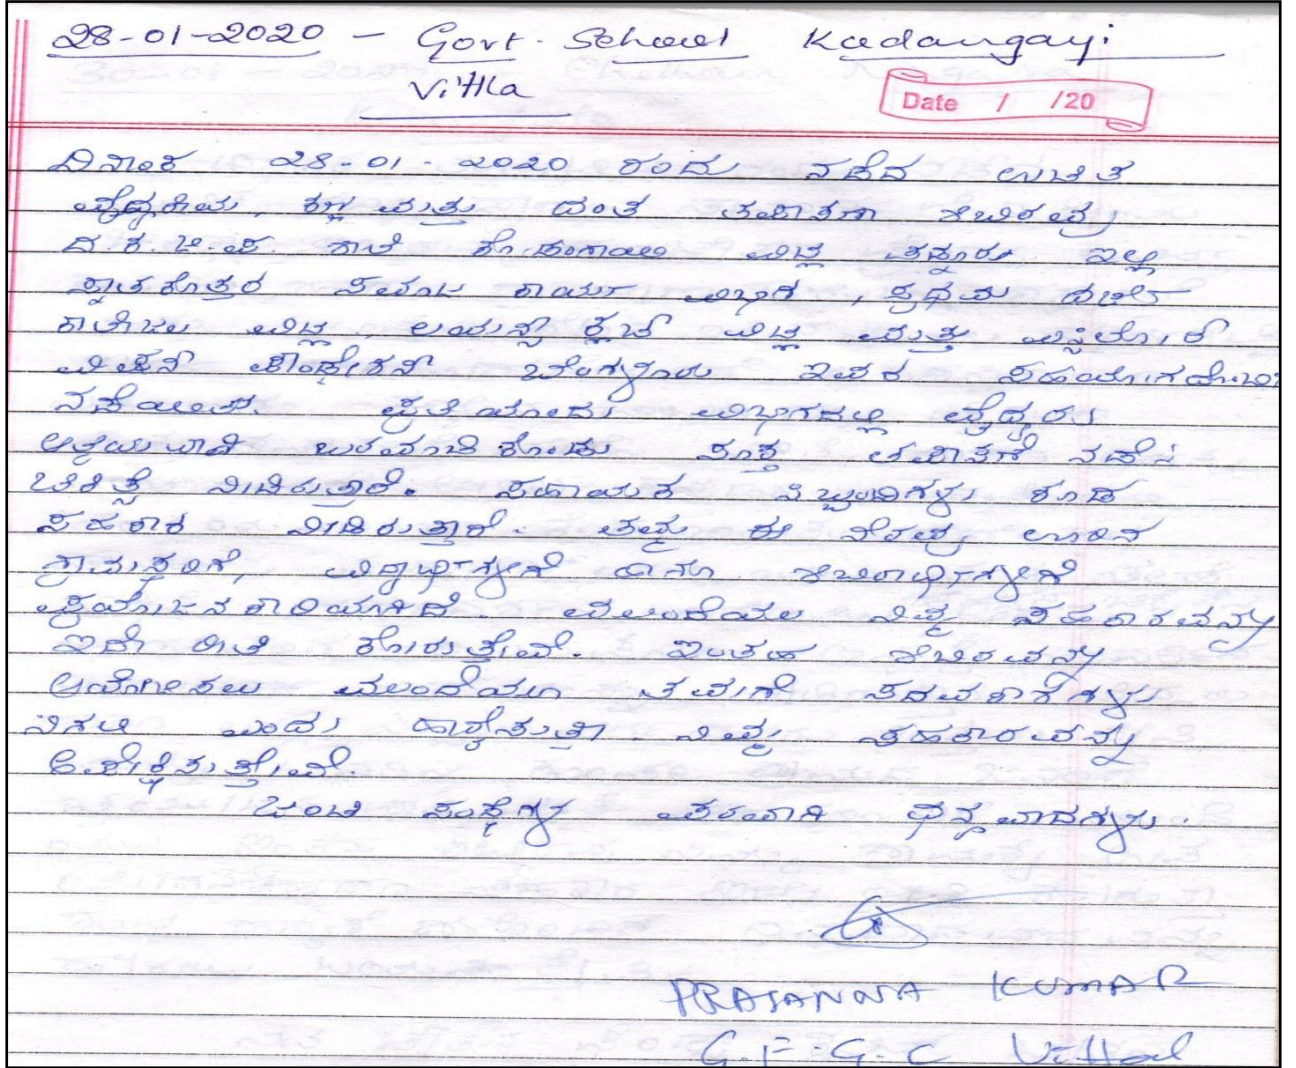 28-01-2020 - Govt. School Kodangayi
Vittla
Date / /20
ದಿನಾಂಕ 28-01-2020 ರಂದು ನಡೆದ ಉಚಿತ
ವೈದ್ಯಕೀಯ, ಕಣ್ಣು ಮತ್ತು ದಂತ ತಪಾಸಣಾ ಶಿಬಿರವು
ದ.ಕ.ಜಿ.ಪ ಶಾಲೆ ಕೊಡಂಗಾಯಿ ವಿಟ್ಲ ಪಡ್ನೂರು ಇಲ್ಲಿ
ಸ್ನಾತಕೋತ್ತರ ಸಮಾಜ ಕಾರ್ಯ ವಿಭಾಗ, ಪ್ರಥಮ ದರ್ಜೆ
ಕಾಲೇಜು ವಿಟ್ಲ, ಲಯನ್ಸ್ ಕ್ಲಬ್ ವಿಟ್ಲ ಮತ್ತು
ವಿಷನ್ ಫೌಂಡೇಶನ್ ಬೆಂಗಳೂರು ಇವರ ಸಹಯೋಗದೊಂದಿಗೆ
ನಡೆಯಿತು. ಪ್ರತಿಯೊಂದು ವಿಭಾಗದಲ್ಲಿ ವೈದ್ಯರು
ಆತ್ಮೀಯವಾಗಿ ಬರಮಾಡಿಕೊಂಡು ಸೂಕ್ತ ತಪಾಸಣೆ ನಡೆಸಿ
ಚಿಕಿತ್ಸೆ ನೀಡಿರುತ್ತಾರೆ. ಸಹಾಯಕ ಸಿಬ್ಬಂದಿಗಳು ಕೂಡ
ಸಹಕಾರ ನೀಡಿರುತ್ತಾರೆ. ನಿಮ್ಮ ಈ ನೆರವು ಊರಿನ
ಗ್ರಾಮಸ್ಥರಿಗೆ, ವಿದ್ಯಾರ್ಥಿಗಳಿಗೆ ಹಾಗೂ ಶಿಬಿರಾರ್ಥಿಗಳಿಗೆ
ಪ್ರಯೋಜನಕಾರಿಯಾಗಿದೆ. ಮುಂದೆಯೂ ನಿಮ್ಮ ಸಹಕಾರವನ್ನು
ಇದೇ ರೀತಿ ಕೋರುತ್ತೇವೆ. ಇಂತಹ ಶಿಬಿರವನ್ನು
ಆಯೋಜಿಸಲು ಮುಂದೆಯೂ ತಮಗೆ ಸದವಕಾಶಗಳು
ಸಿಗಲಿ ಎಂದು ಹಾರೈಸುತ್ತಾ ನಿಮ್ಮ ಸಹಕಾರವನ್ನು
ಅಪೇಕ್ಷಿಸುತ್ತೇವೆ.
ಜಂಟಿ ಸಂಸ್ಥೆಗಳ ಪರವಾಗಿ ಧನ್ಯವಾದಗಳು.
PRASANNA KUMAR
G.F.G.C Vittal